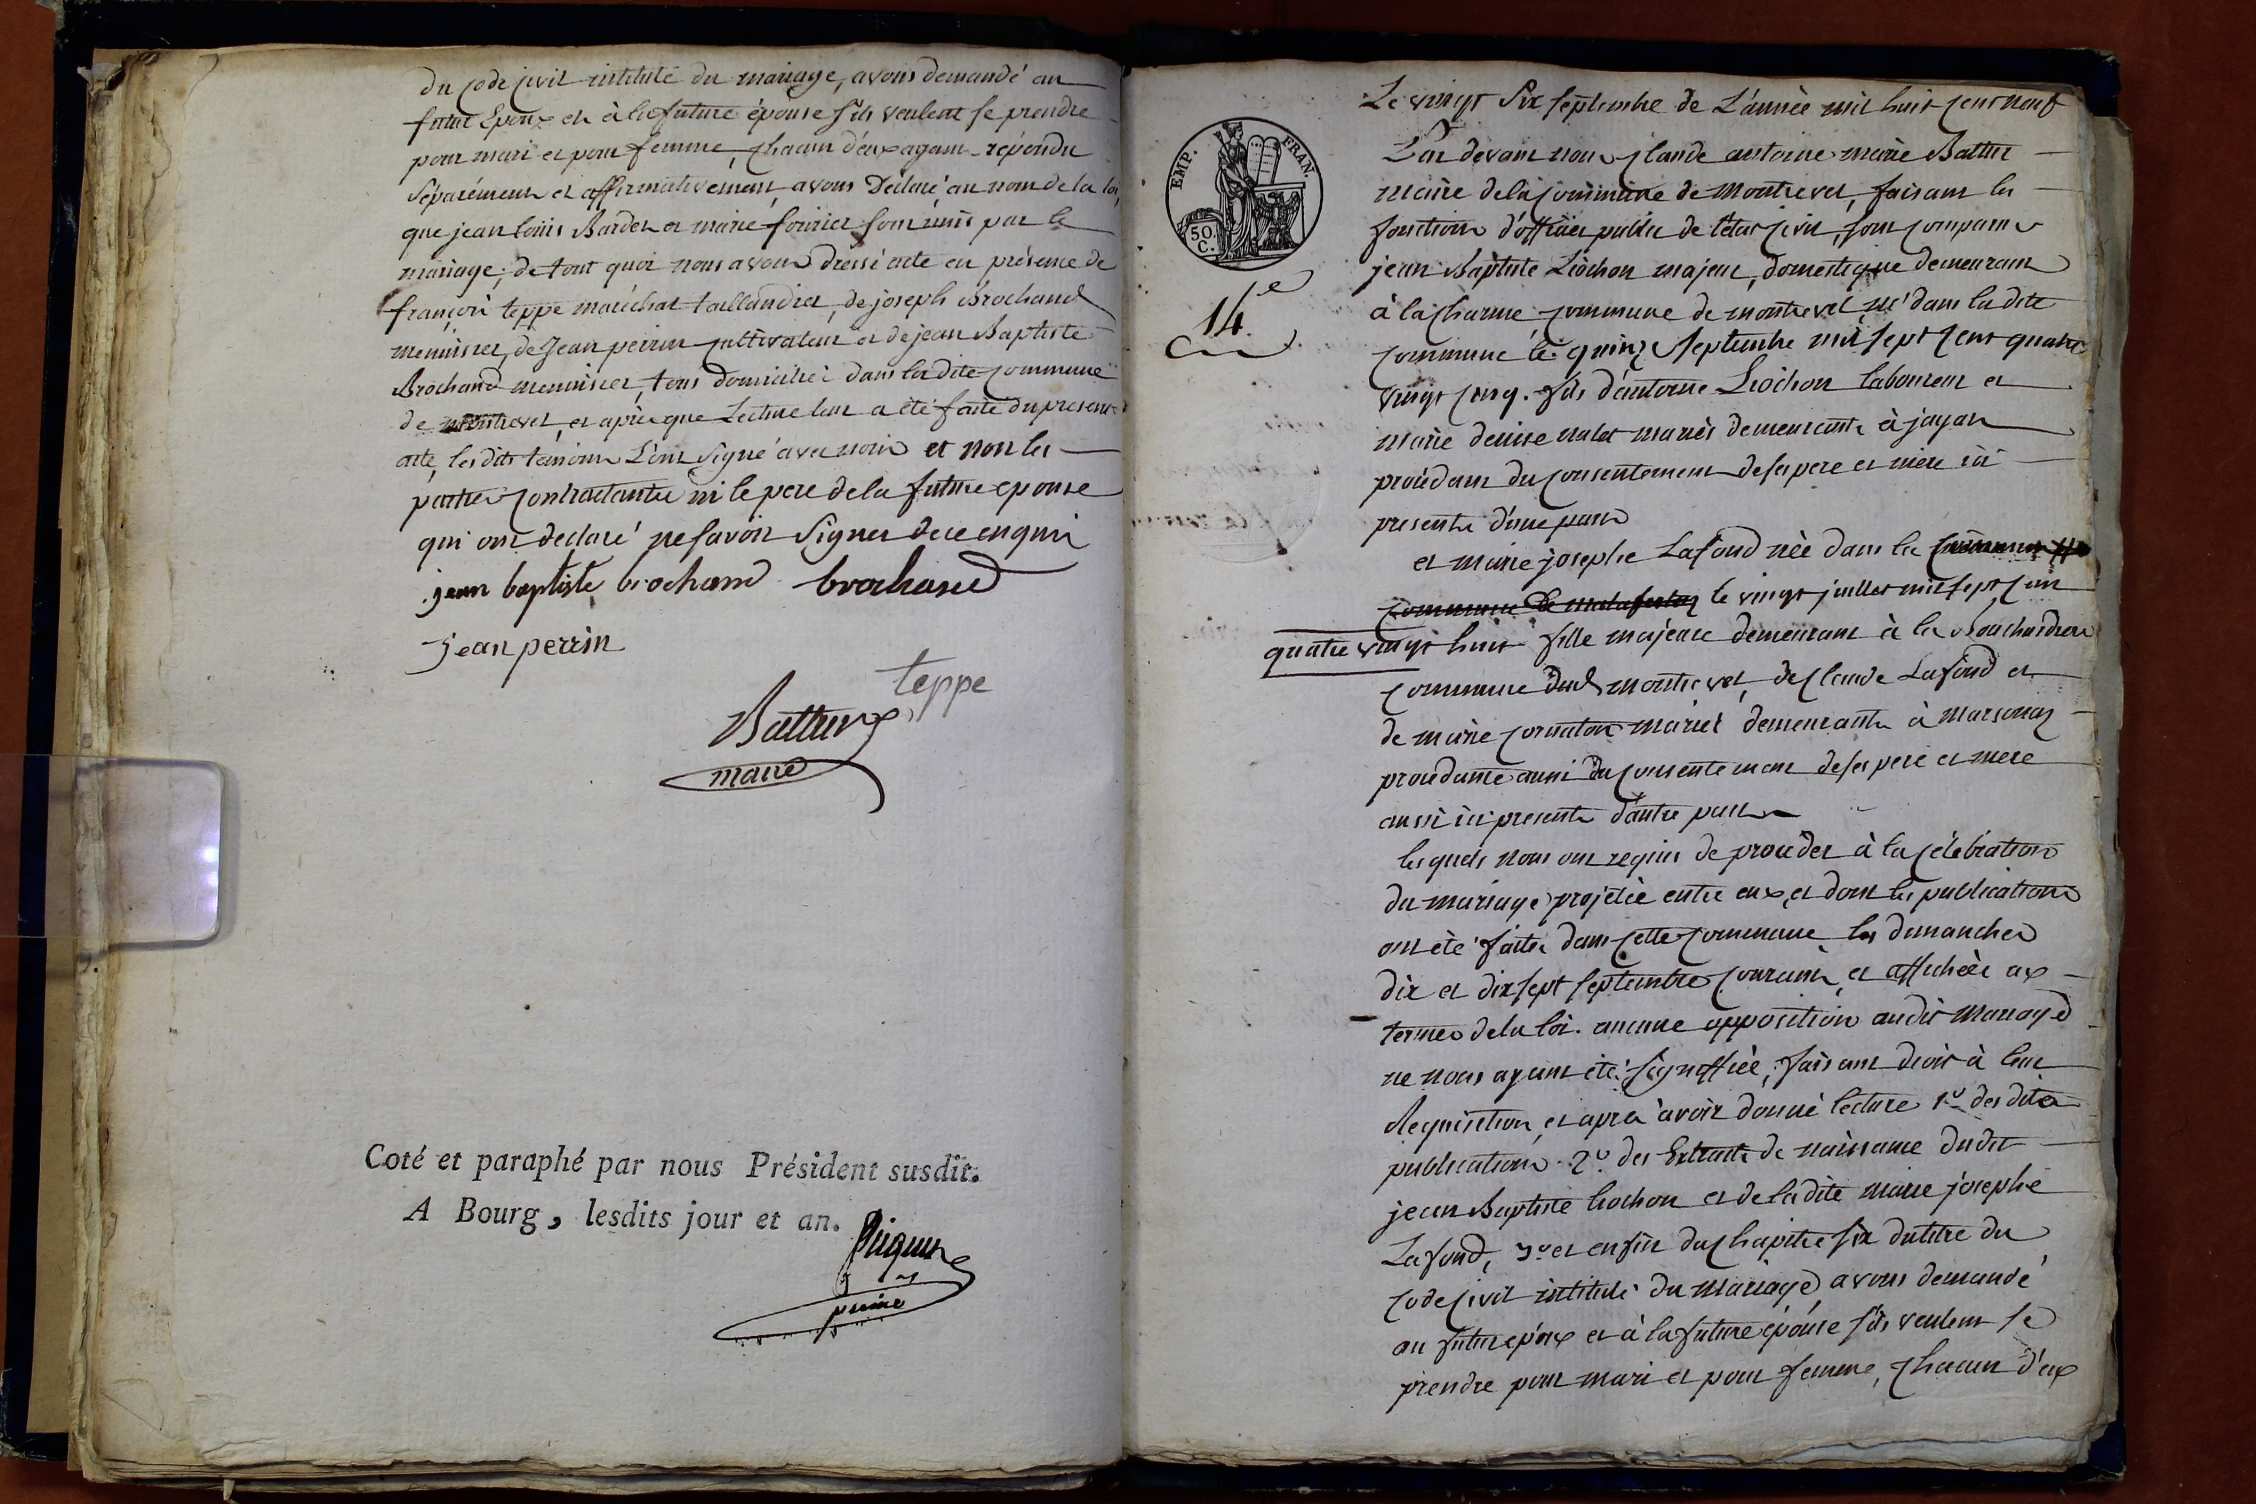 du code civil intitulé du mariage, avons demandé au
futur Epoux et à la future épouse s'ils veulent se prendre
pour mari et pour femme, chacun d'eux ayant répondu
séparément et affirmativement, avons déclaré au nom de la loi,
que jean Louis Bardet et marie fourier sont unis par le
mariage; de tout quoi nous avons dressé acte en présence de
françois teppe maréchal taillandier, de joseph Brochand
menuisier, de Jean perrin cultivateur et de jean Baptiste
Brochand menuisier, tous domiciliés dans la dite commune
de montrevel, et après que Lecture leur a été faite du present
acte, les dits témoins L'ont signé avec nous et non les
parties contractantes ni le pere de la future epouse
qui ont declaré ne savoir signer de ce enquis
jean baptiste brochand brochand
jean perrin
teppe
Battur
maire
Coté et paraphé par nous Président susdit.
A Bourg, lesdits jour et an.
EMP. FRAN.
50.
C.
14.e
Le vingt six septembre de L'année mil huit cent neuf
Par devant nous Claude antoine marie Battur
maire de la commune de Montrevel, faisant les
fonctions d'officier public de l'état civil, sont comparus
jean Baptiste Liochon majeur, domestique demeurant
à la charme commune de montrevel, né dans la dite
commune le quinze septembre mil sept cent quatre
vingt cinq. fils d'antoine Liochon laboureur et
marie denise mariés demeurants à jayat
procédant du consentement de ses pere et mère ici
presents d'une part
et marie josephe Lafond née dans la commune
commune de malafretaz le vingt juillet mil sept cent
quatre vingt huit fille majeure demeurant à la
commune dud montrevel, de Claude Lafond et
de marie cornaton mariés demeurants à Marsonnaz
procedante aussi du consentement de ses pere et mere
aussi ici presents d'autre part
lesquels nous ont requis de procéder à la célébration
du mariage projetée entre eux, et dont les publications
ont été faites dans cette commune les dimanches
dix et dix sept septembre courant, et affichées aux
termes de la loi. aucune opposition audit mariage
ne nous ayant été signiffiée, faisant droit à leur
Requisition, et après avoir donné lecture 1.o des dites
publications 2.o des Extraits de naissance dudit
jean Baptiste liochon et de ladite marie josephe
Lafond, 3.o et enfin du chapitre six du titre du
code civil intitulé du Mariage, avons demandé
au futur epoux et à la future épouse s'ils veulent se
prendre pour mari et pour femme, chacun d'eux